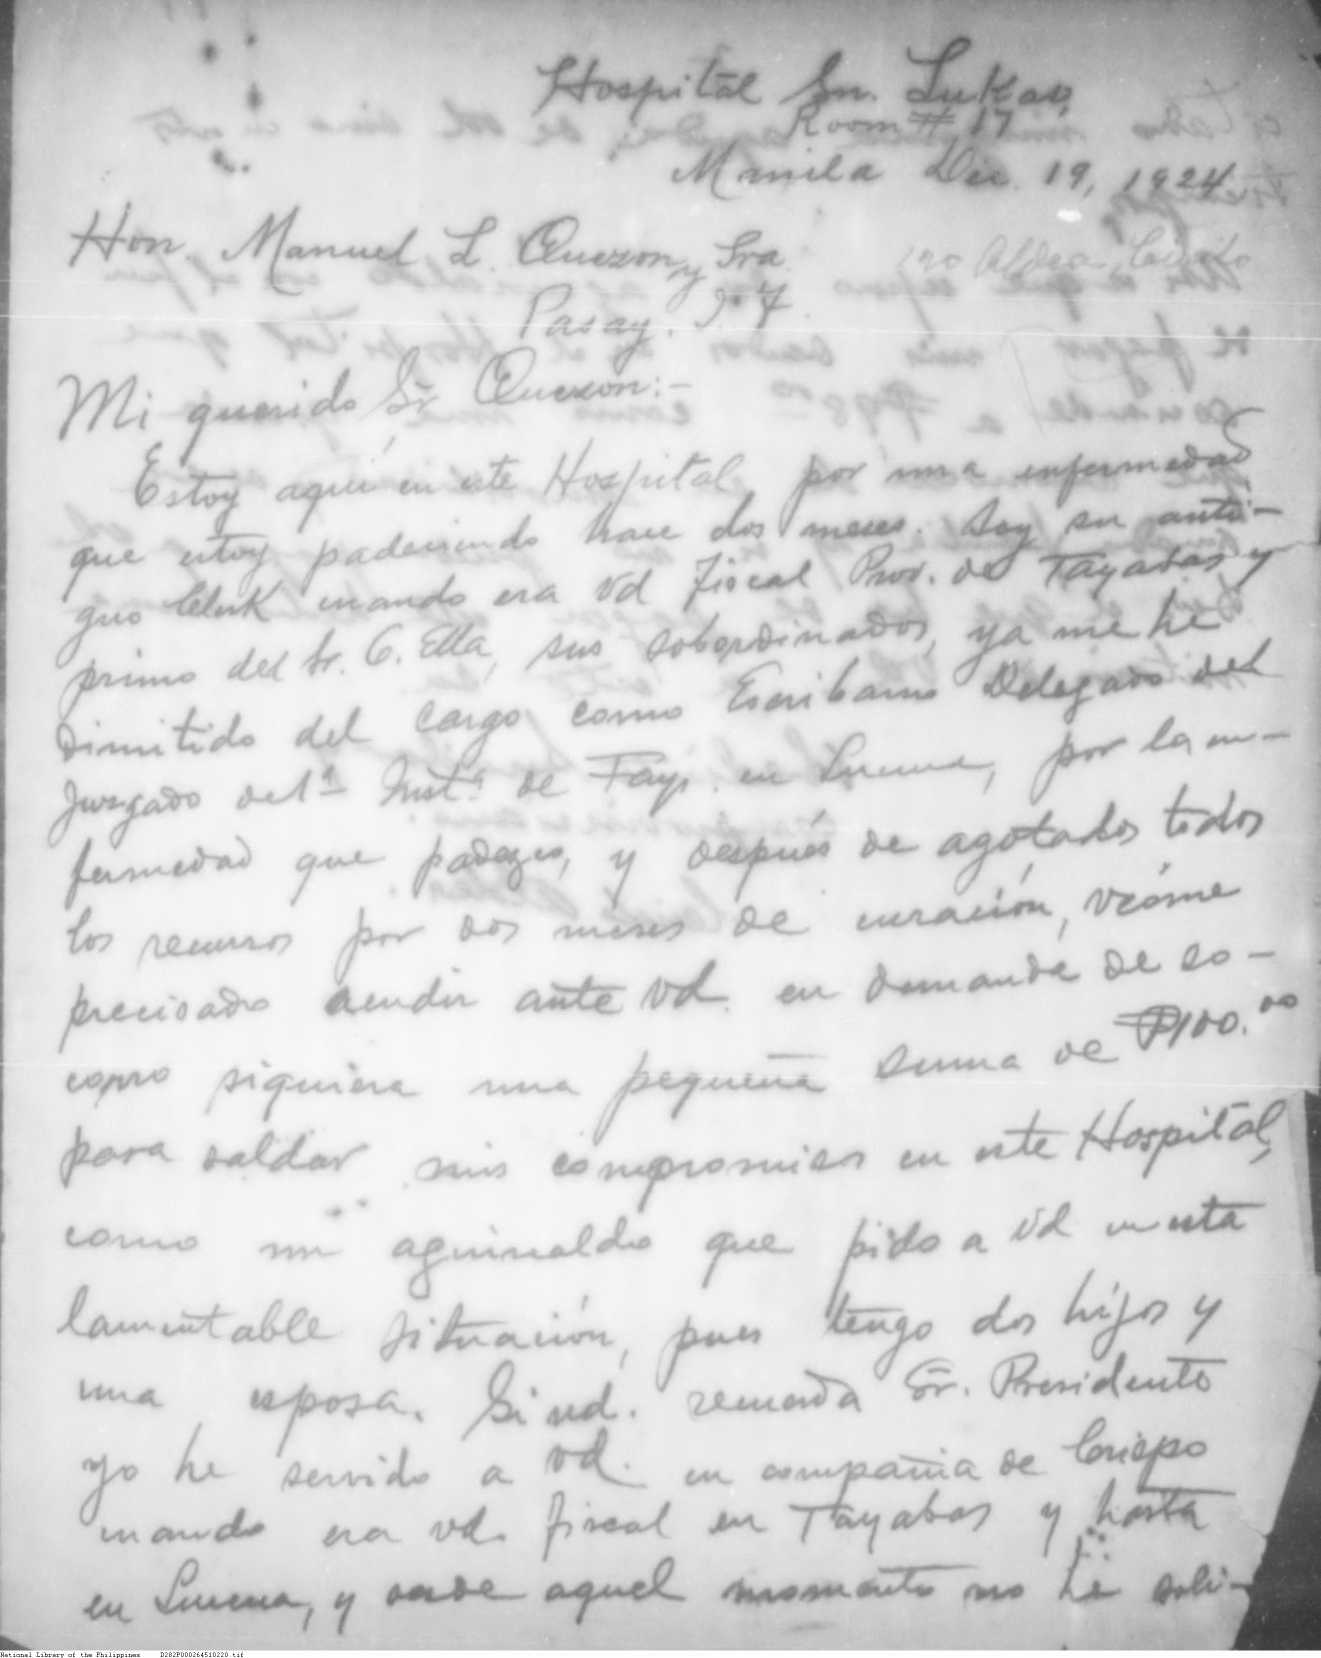 Hospital Sn. Lukas,
Room # 17
Manila Dic. 19, 1924
Hon. Manuel L. Quezon y Sra.
Aldea, Cirilo
Pasay. I. F.
Mi querido Sr. Quezon:-
Estoy aqui en este Hospital por una enfermedad
que estoy padeciendo hace dos meses. Soy su anti-
guo Clerk cuando era Vd Fiscal Prov. de Tayabas y
primo del Sr. C. Ella, sus sobordinados, ya me he
dimitido del cargo como Escribano Delegado del
Juzgado de 1ª Inst.ª de Tay. en Lucena, por la en-
fermedad que padezco, y después de agotados todos
los recursos por dos meses de curación, véome
precisado acudir ante Vd. en demanda de so-
corro siquiera una pequeña suma de ₱100.00
para saldar mis compromisos en este Hospital,
como un aguinaldo que pido a Vd en esta
lamentable situación, pues tengo dos hijos y
una esposa. Si vd. recuerda Sr. Presidente
yo he servido a Vd. en compañia de Crispo
cuando era vd. fiscal en Tayabas y hasta
en Lucena, y desde aquel momento no he soli-
National Library of the Philippines D282P000264510220.tif